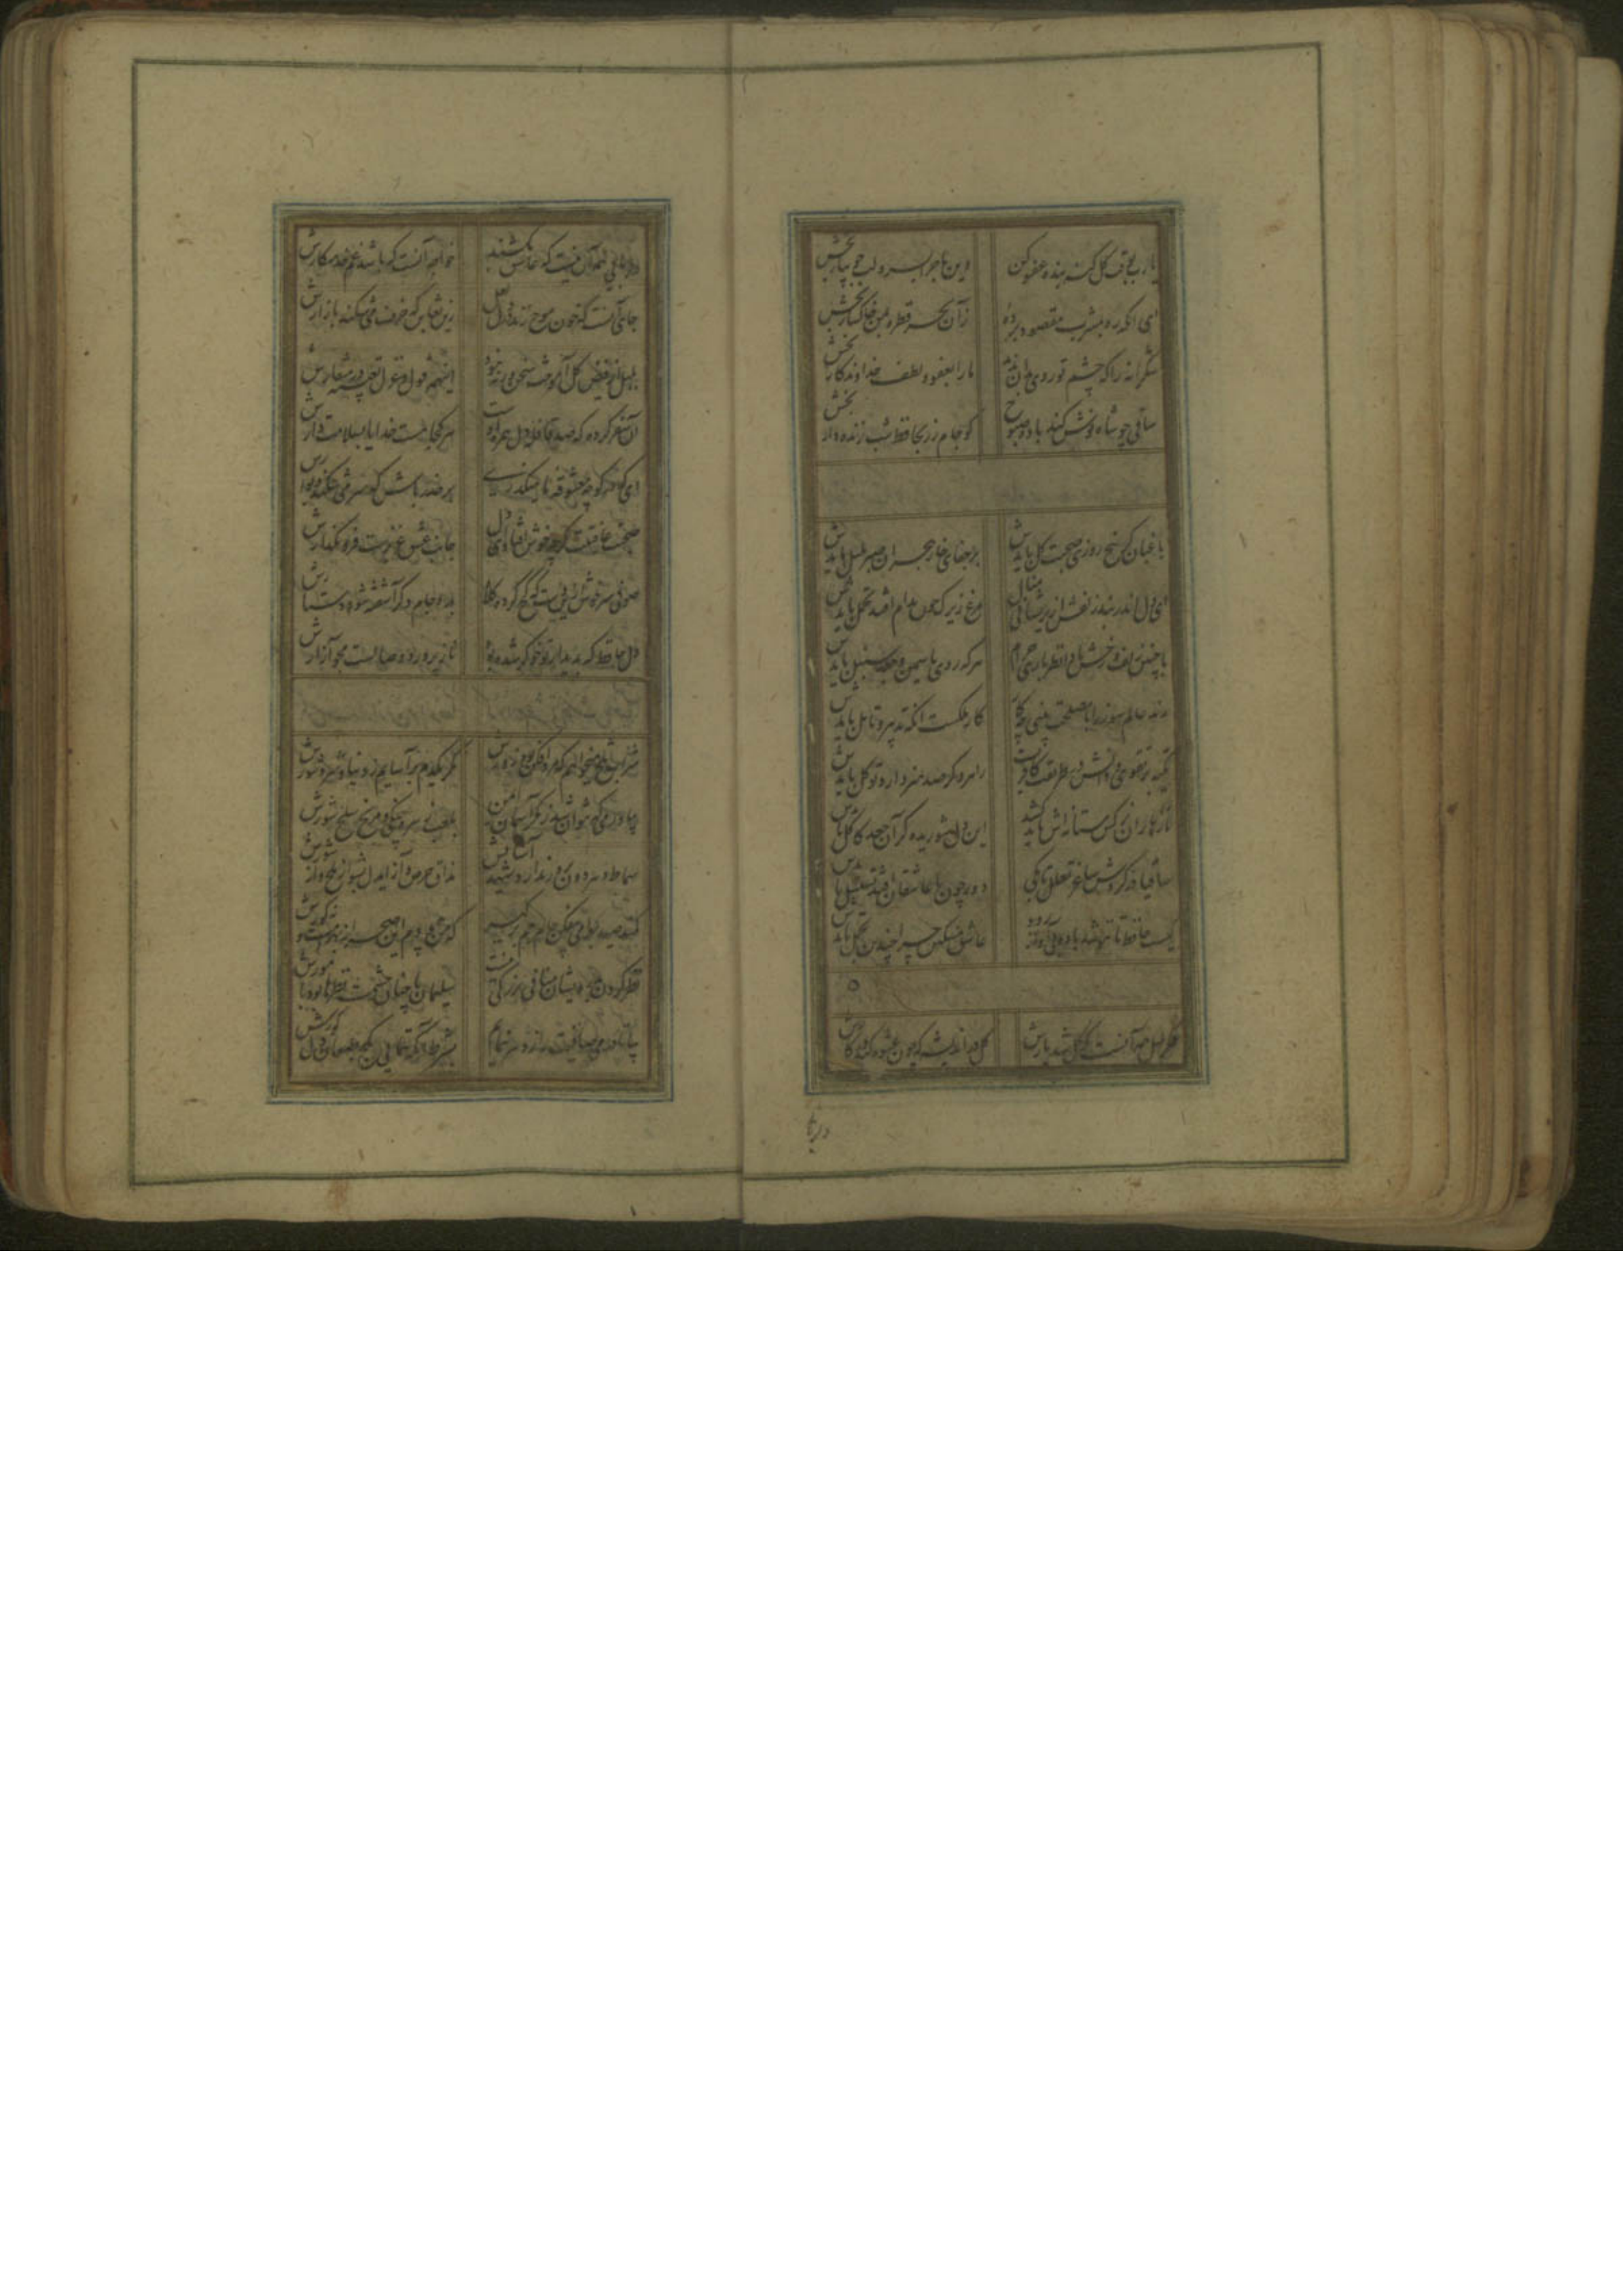 یارب بوقت گل گنه بنده عفو کن وین ماجرا بسرو لب جویبار بخش
ای آنکه ره بمشرب مقصود برده زآن بحر قطره بمن خاکسار بخش
شکرانه را که چشم تو روی بتان ندید ما را بعفو و لطف خداوندکار بخش
ساقی چو شاه نوش کند باده صبوح گو جام زر بحافظ شب زنده‌دار بخش
باغبان گر پنج روزی صحبت گل بایدش بر جفای خار هجران صبر بلبل بایدش
ای دل اندر بند زلفش از پریشانی منال مرغ زیرک چون بدام افتد تحمل بایدش
با چنین زلف و رخش بادا نظربازی حرام هر که روی یاسمین و جعد سنبل بایدش
رند عالم سوز را با مصلحت بینی چه کار کار ملکست آنکه تدبیر و تامل بایدش
تکیه بر تقوی و دانش در طریقت کافریست راهرو گر صد هنر دارد توکل بایدش
نازها زان نرگس مستانه‌اش باید کشید این دل شوریده گر آن جعد کاکل بایدش
ساقیا در گردش ساغر تعلل تا بکی دور چون با عاشقان افتد تسلسل بایدش
کیست حافظ تا ننوشد باده بی آواز رود عاشق مسکین چرا چندین تجمل بایدش
فکر بلبل همه آنست که گل شد یارش گل در اندیشه که چون عشوه کند در کارش
دلربا
دلربائی همه آن نیست که عاشق بکشند خواجه آنست که باشد غم خدمتکارش
جای آنست که خون موج زند در دل لعل زین تغابن که خزف می‌شکند بازارش
بلبل از فیض گل آموخت سخن ورنه نبود اینهمه قول و غزل تعبیه در منقارش
آن سفر کرده که صد قافله دل همره اوست هر کجا هست خدایا بسلامت دارش
ای که در کوچه معشوقه ما میگذری بر حذر باش که سر می‌شکند دیوارش
صحبت عافیتت گرچه خوش افتاد ای دل جانب عشق عزیزست فرو مگذارش
صوفی سرخوش ازین دست که کج کرد کلاه بدو جام دگر آشفته شود دستارش
دل حافظ که بدیدار تو خوگر شده بود نازپرورد وصالست مجو آزارش
شراب تلخ میخواهم که مرد افکن بود زورش مگر یکدم برآسایم ز دنیا و شر و شورش
بیاور می که نتوان شد ز مکر آسمان ایمن بلعب زهره چنگی و مریخ سلحشورش
سماط دهر دون پرور ندارد شهد آسایش مذاق حرص و آز ای دل بشوی از تلخ و از شورش
کمند صید بهرامی بیفکن جام جم برگیر که من پیمودم این صحرا نه بهرامست و نه گورش
نظر کردن بدرویشان منافی بزرگی نیست سلیمان با چنان حشمت نظرها بود با مورش
بیا تا در می صافیت راز دهر بنمایم بشرط آنکه ننمائی بکج طبعان دل کورش